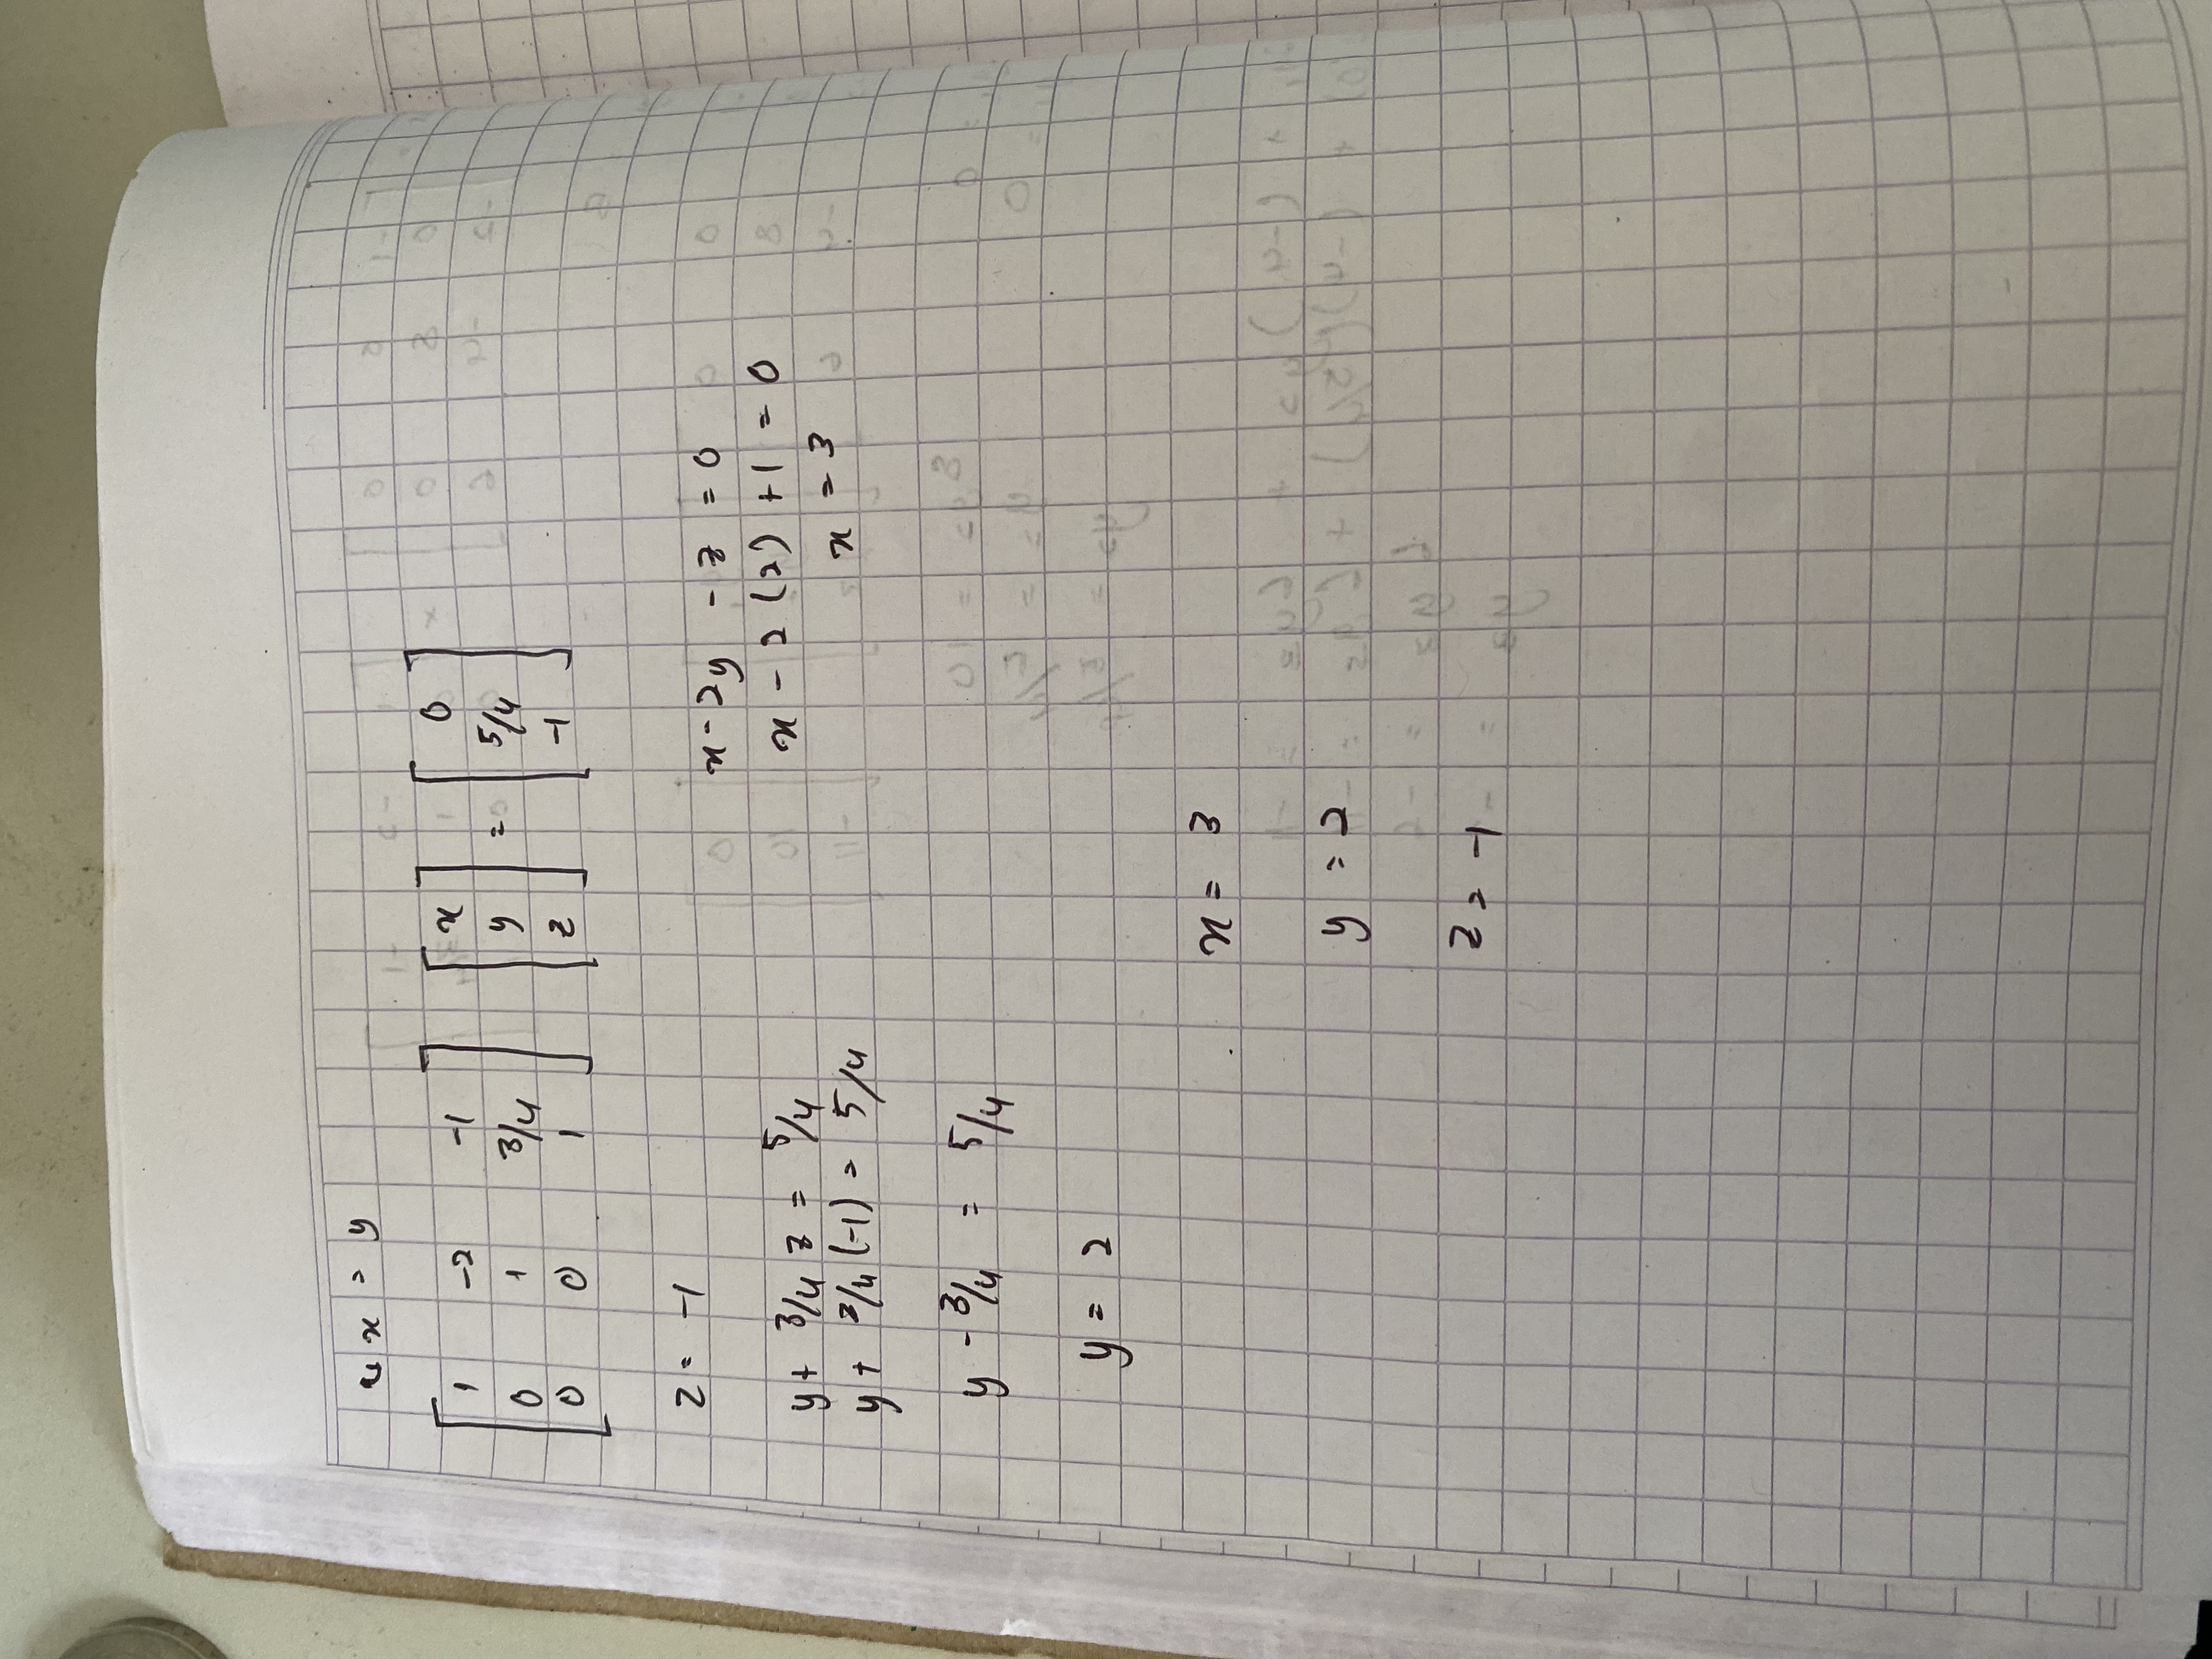 u x = y
[ 1 -2 -1 ] [ x ] = [ 0 ]
[ 0 1 3/4 ] [ y ] [ 5/4 ]
[ 0 0 1 ] [ z ] [ -1 ]
z = -1
y + 3/4 z = 5/4
y + 3/4 (-1) = 5/4
y - 3/4 = 5/4
y = 2
x - 2y - z = 0
x - 2 (2) + 1 = 0
x = 3
x = 3
y = 2
z = -1